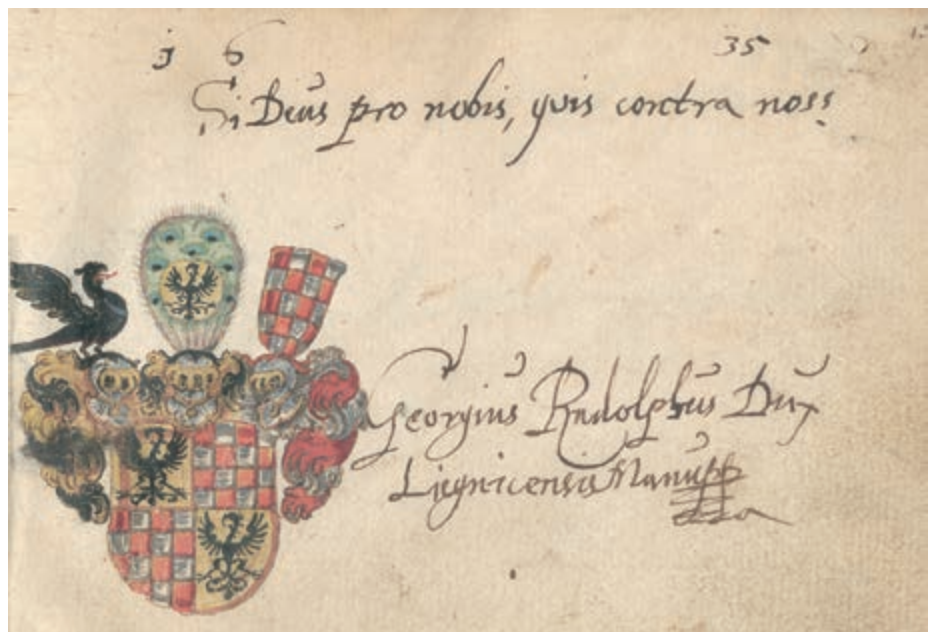 16 35
Si Deus pro nobis, quis contra nos?
Georgius Rudolphus Dux
Lignicensis Manupp